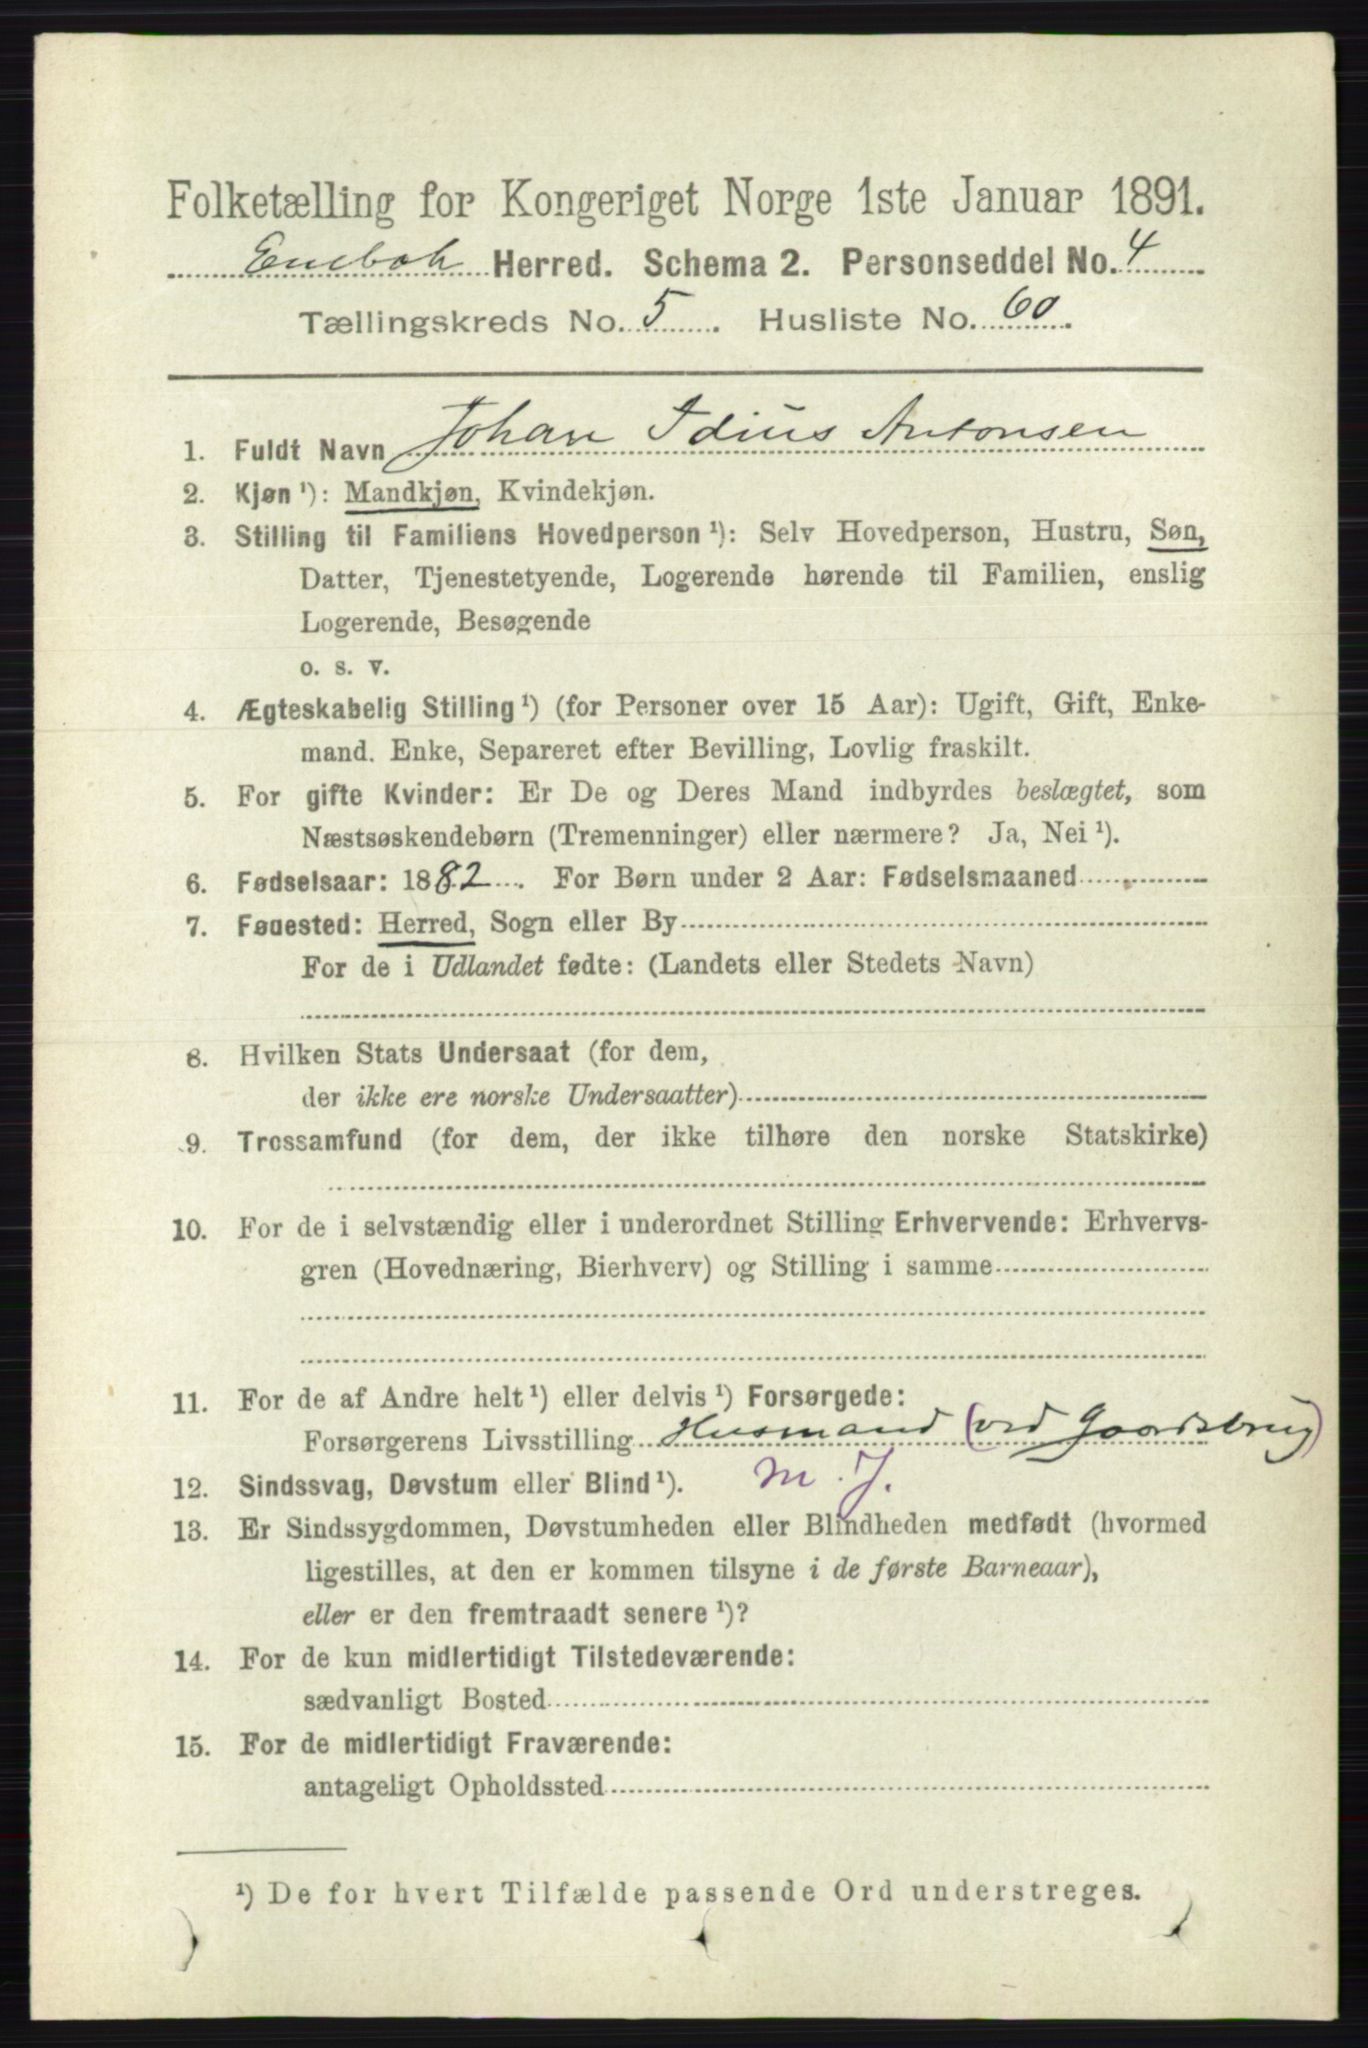 Folketælling for Kongeriget Norge 1ste Januar 1891.
Enebak Herred. Schema 2. Personseddel No. 4
Tællingskreds No. 5. Husliste No. 60.
1. Fuldt Navn Johan Idius Antonsen
2. Kjøn ¹): Mandkjøn, Kvindekjøn.
3. Stilling til Familiens Hovedperson ¹): Selv Hovedperson, Hustru, Søn,
Datter, Tjenestetyende, Logerende hørende til Familien, enslig
Logerende, Besøgende
o. s. v.
4. Ægteskabelig Stilling ¹) (for Personer over 15 Aar): Ugift, Gift, Enke-
mand. Enke, Separeret efter Bevilling, Lovlig fraskilt.
5. For gifte Kvinder: Er De og Deres Mand indbyrdes beslægtet, som
Næstsøskendebørn (Tremenninger) eller nærmere? Ja, Nei ¹).
6. Fødselsaar: 1882. For Børn under 2 Aar: Fødselsmaaned
7. Føuested: Herred, Sogn eller By
For de i Udlandet fødte: (Landets eller Stedets Navn)
8. Hvilken Stats Undersaat (for dem,
der ikke ere norske Undersaatter)
9. Trossamfund (for dem, der ikke tilhøre den norske Statskirke)
10. For de i selvstændig eller i underordnet Stilling Erhvervende: Erhvervs-
gren (Hovednæring, Bierhverv) og Stilling i samme
11. For de af Andre helt ¹) eller delvis ¹) Forsørgede:
Forsørgerens Livsstilling Husmand (ved Gaardsbrug)
12. Sindssvag, Døvstum eller Blind ¹). m. J.
13. Er Sindssygdommen, Døvstumheden eller Blindheden medfødt (hvormed
ligestilles, at den er kommen tilsyne i de første Barneaar),
eller er den fremtraadt senere ¹)?
14. For de kun midlertidigt Tilstedeværende:
sædvanligt Bosted
15. For de midlertidigt Fraværende:
antageligt Opholdssted
¹) De for hvert Tilfælde passende Ord understreges.